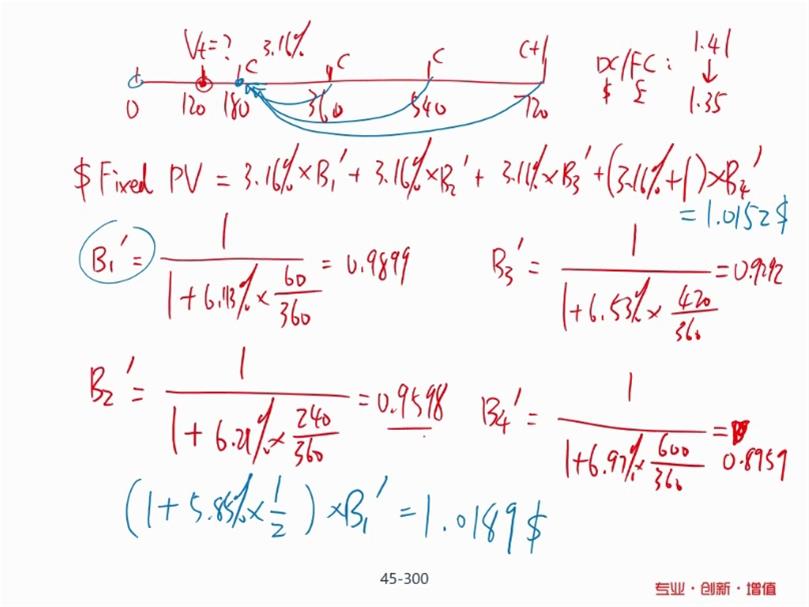 Vt=? 3.16%
C C C C+1
0 120 180 360 540 720
DC/FC: 1.41
$ £ ↓
1.35
$ Fixed PV = 3.16%×B₁' + 3.16%×B₂' + 3.16%×B₃' + (3.16%+1)×B₄'
= 1.0152 $
B₁' = 1/(1+6.13%×60/360) = 0.9899
B₃' = 1/(1+6.53%×420/360) = 0.9292
B₂' = 1/(1+6.29%×240/360) = 0.9598
B₄' = 1/(1+6.97%×600/360) = 0.8959
(1+5.85%×1/2)×B₁' = 1.0189 $
45-300
专业·创新·增值